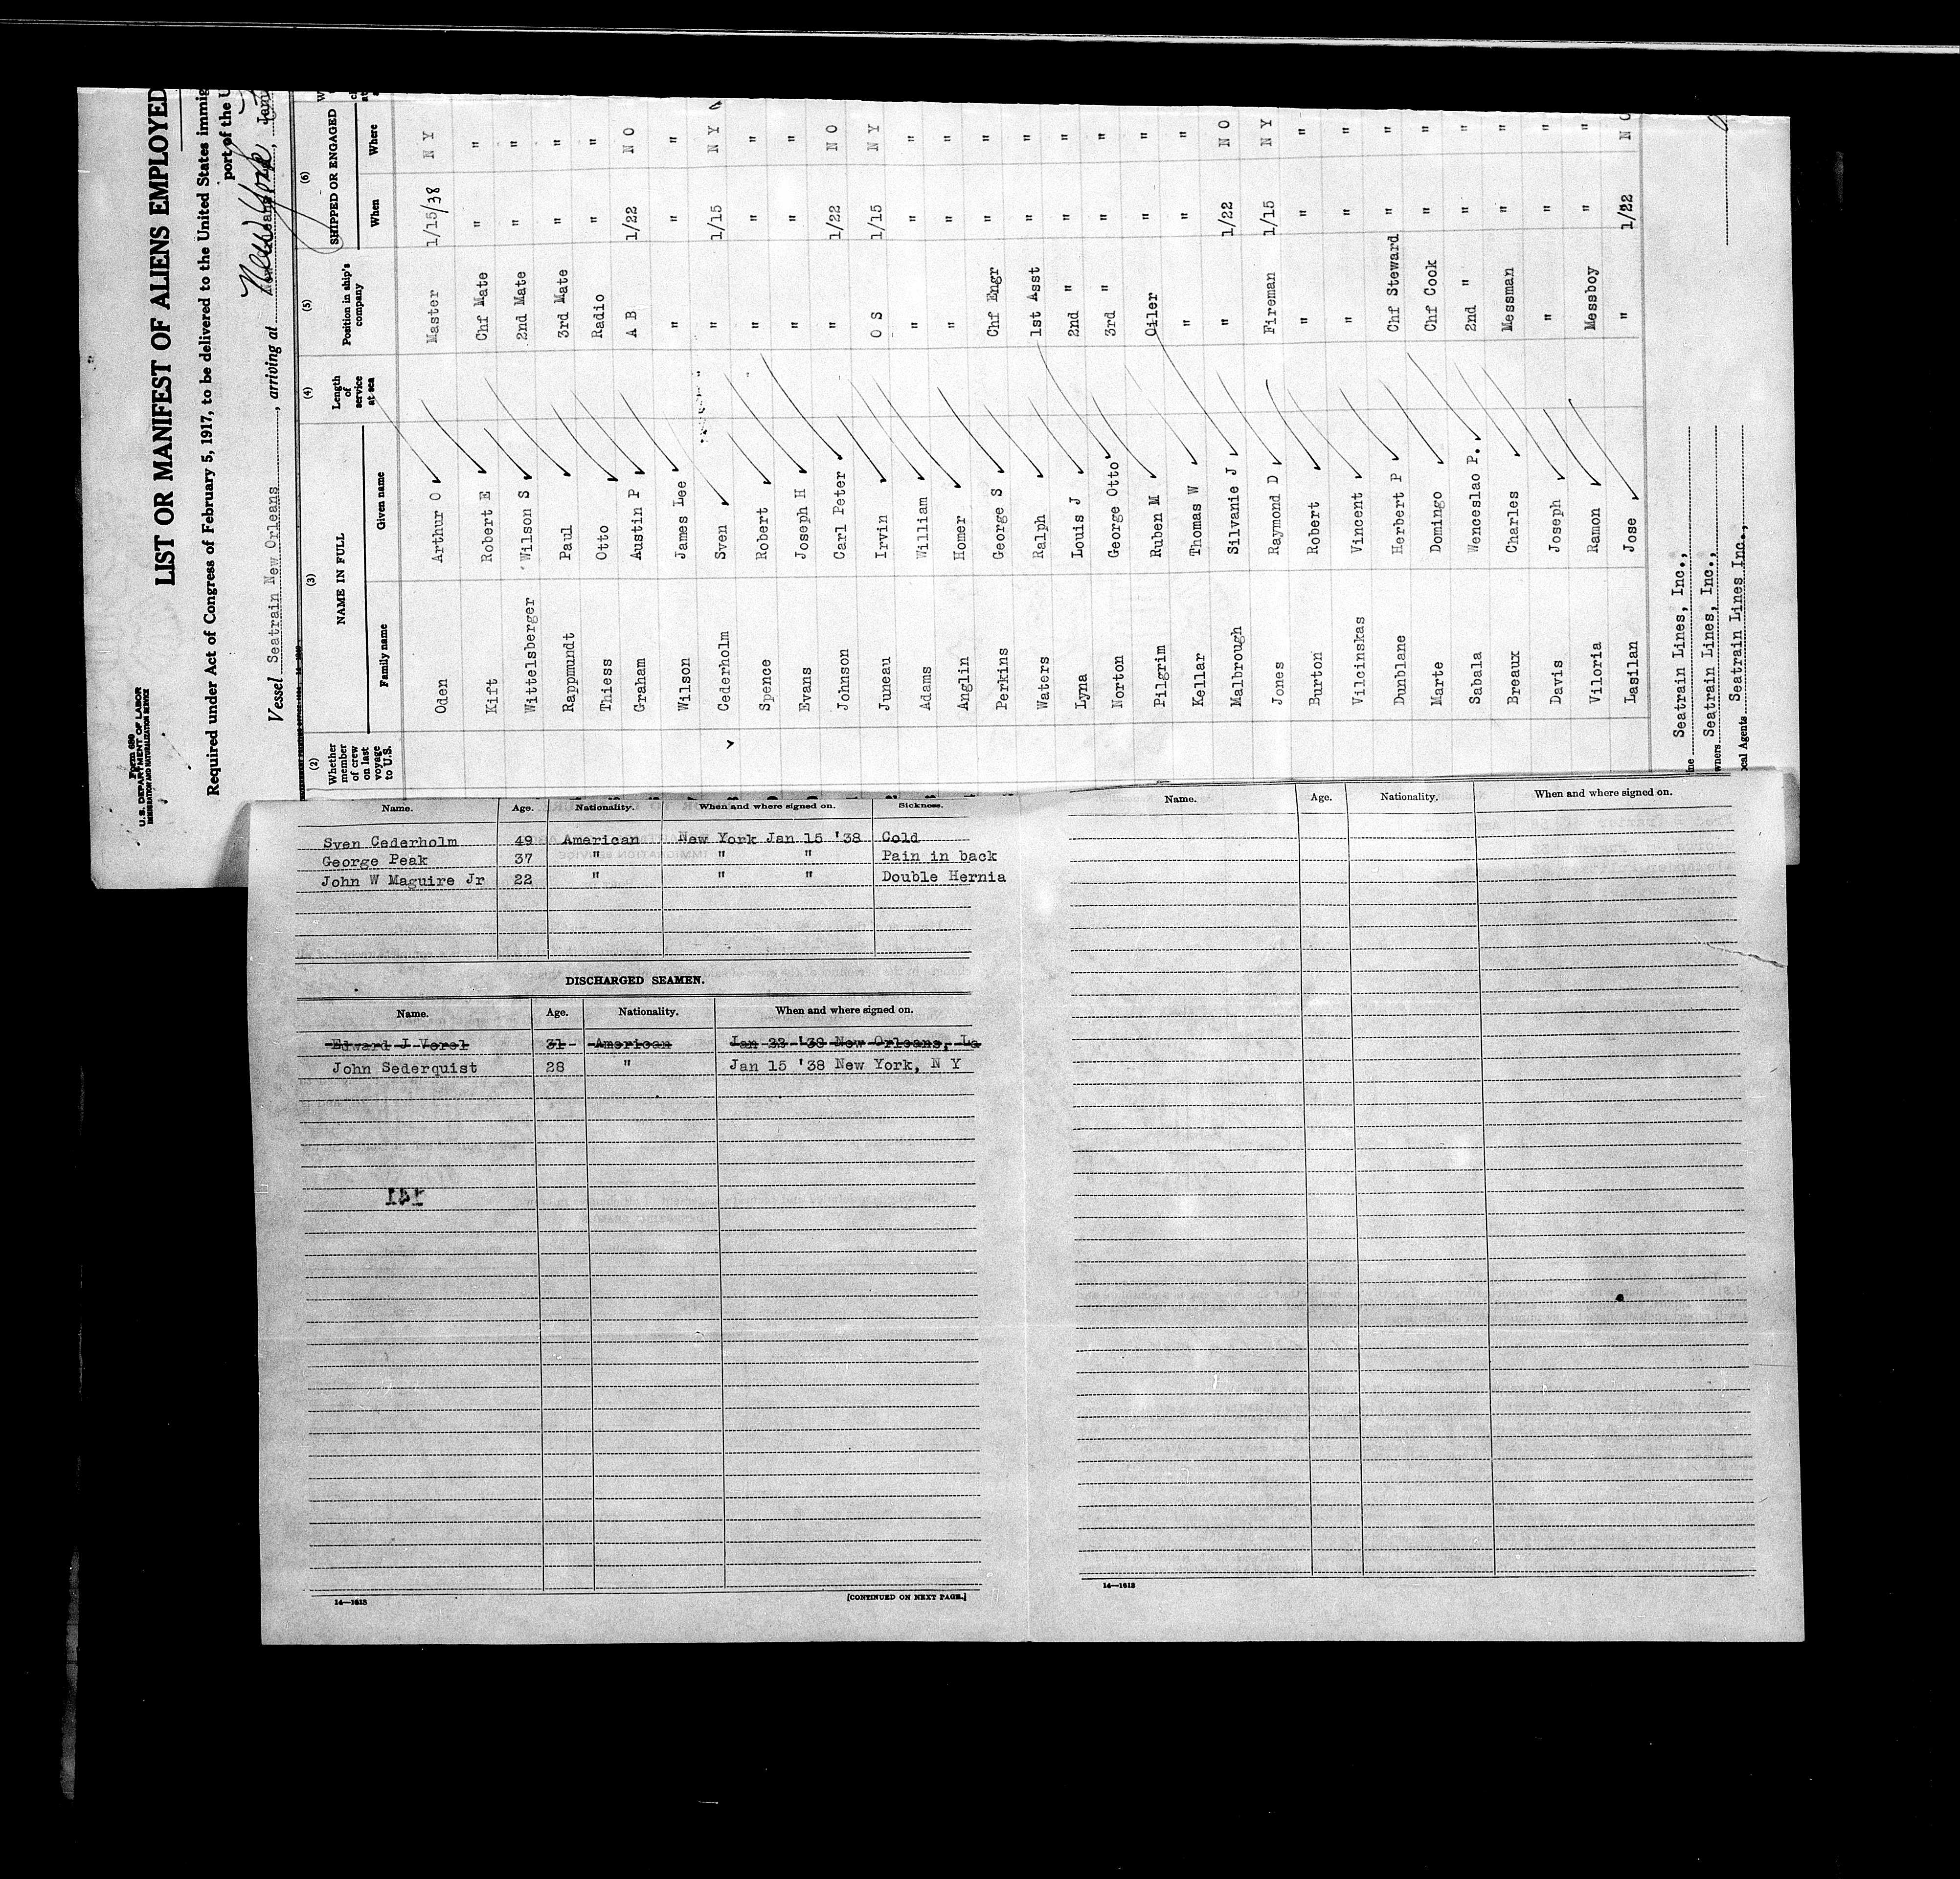 Form 680
U. S. DEPARTMENT OF LABOR
IMMIGRATION AND NATURALIZATION SERVICE
LIST OR MANIFEST OF ALIENS EMPLOYED
Required under Act of Congress of February 5, 1917, to be delivered to the United States immig
port of the U
Vessel Seatrain New Orleans, arriving at New York,
(2) (3) (4) (5) (6)
Whether member of crew on last voyage to U.S. NAME IN FULL Length of service at sea Position in ship's company SHIPPED OR ENGAGED
Family name Given name When Where
Oden Arthur O Master 1/15/38 N Y
Kift Robert E Chf Mate " "
Wittelsberger Wilson S 2nd Mate " "
Rappmundt Paul 3rd Mate " "
Thiess Otto Radio " "
Graham Austin P A B 1/22 N O
Wilson James Lee " " "
Cederholm Sven " 1/15 N Y
Spence Robert " " "
Evans Joseph H " " "
Johnson Carl Peter " 1/22 N O
Juneau Irvin O S 1/15 N Y
Adams William " " "
Anglin Homer " " "
Perkins George S Chf Engr " "
Waters Ralph 1st Asst " "
Lyna Louis J 2nd " " "
Norton George Otto 3rd " " "
Pilgrim Ruben M Oiler " "
Kellar Thomas W " " "
Malbrough Silvanie J " 1/22 N O
Jones Raymond D Fireman 1/15 N Y
Burton Robert " " "
Vilcinskas Vincent " " "
Dunblane Herbert P Chf Steward " "
Marte Domingo Chf Cook " "
Sabala Wenceslao P. 2nd " " "
Breaux Charles Messman " "
Davis Joseph " " "
Viloria Ramon Messboy " "
Lasilan Jose " 1/22 N O
ne Seatrain Lines, Inc.,
wners Seatrain Lines, Inc.,
ocal Agents Seatrain Lines Inc.,
Name. Age. Nationality. When and where signed on. Sickness.
Sven Cederholm 49 American New York Jan 15 '38 Cold
George Peak 37 " " " Pain in back
John W Maguire Jr 22 " " " Double Hernia
DISCHARGED SEAMEN.
Name. Age. Nationality. When and where signed on.
Edward J Vorel 31 American Jan 22 '38 New Orleans, La
John Sederquist 28 " Jan 15 '38 New York, N Y
141
14—1613 [CONTINUED ON NEXT PAGE.]
Name. Age. Nationality. When and where signed on.
14—1613